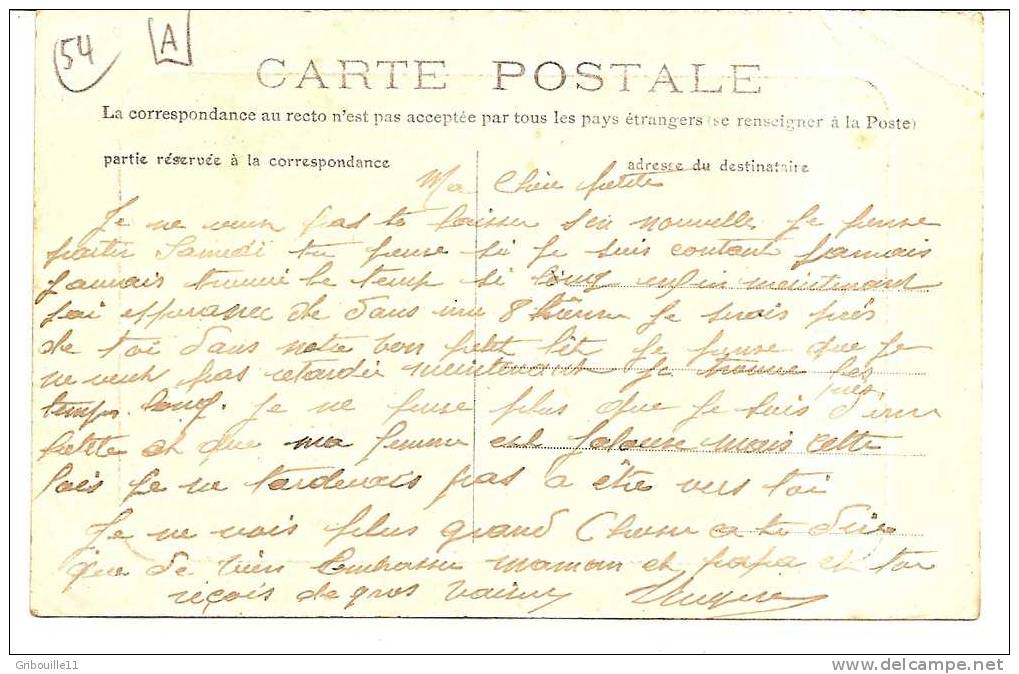 54 A
CARTE POSTALE
La correspondance au recto n'est pas acceptée par tous les pays étrangers (se renseigner à la Poste)
partie réservée à la correspondance
adresse du destinataire
Ma Chère petite
Je ne veux pas te laisser sen nouvelle Je pense
partir Samedi tu pense si je suis contant Jamais
Jamais trouvé le temp si long enfin maintenant
Jai esperance de dans une 8 Je serais près
de toi dans notre bon petit lit Je pense que Je
ne veux pas retardé maintenant Je trouve les
temps long. Je ne pense plus que Je suis près d'une
petite et que ma femme est Jalouse mais cette
fois Je ne tarderais pas a être vers toi
Je ne vois plus grand Chose a te dire
que de bien Embrasser maman et papa et toi
reçois de gros baiser
Gribouille11
delcampe.net